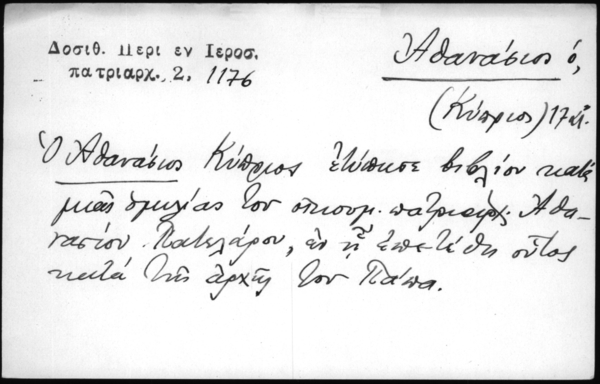 Δοσιθ. Περι εν Ιεροσ.
πατριαρχ., 2, 1176
Ἀθανάσιος ὁ,
(Κύπριος) 17 αἰ.
Ὁ Ἀθανάσιος Κύπριος ἐτύπησε βιβλίον κατὰ
μιᾶς ὁμιλίας τοῦ οἰκουμ. πατριάρχ. Ἀθα-
νασίου Πατελάρου, ἐν ᾗ ἐπετέθη οὗτος
κατὰ τῆς ἀρχῆς τοῦ Πάπα.